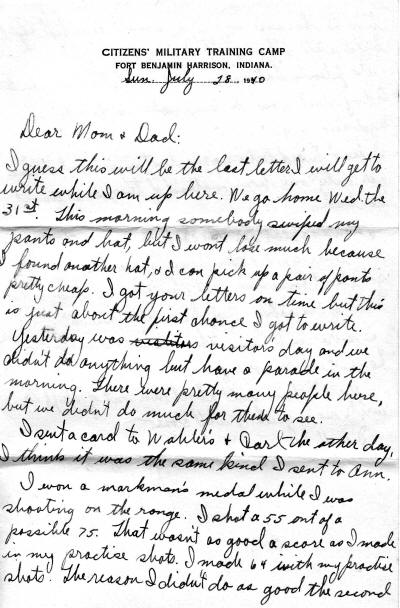 CITIZENS' MILITARY TRAINING CAMP
FORT BENJAMIN HARRISON, INDIANA.
Sun. July 28 1940
Dear Mom & Dad:
I guess this will be the last letter I will get to
write while I am up here. We go home Wed. the
31st. This morning somebody swiped my
pants and hat, but I wont lose much because
I found another hat, & I can pick up a pair of pants
pretty cheap. I got your letters on time but this
is just about the first chance I got to write.
Yesterday was visitors visitors day and we
didn't do anything but have a parade in the
morning. There were pretty many people here,
but we didn't do much for them to see.
I sent a card to Wahlers & the other day,
I think it was the same kind I sent to Ann.
I won a markman's medal while I was
shooting on the range. I shot a 55 out of a
possible 75. That wasn't as good a score as I made
in my practise shots. I made 64 with my practise
shots. The reason I didn't do as good the second